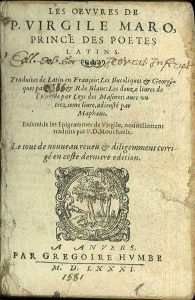 LES OEVVRES DE
P. VIRGILE MARO,
PRINCE DES POETES
LATINS.
Traduites de Latin en François: Les Bucoliques & Georgi-
ques par & R. le Blanc: Les douze liures de
l'Eneide par Loys des Masures: auec vn
trezieme liure, adiousté par
Mapheus.
Ensemble les Epigrammes de Virgile, nouuellement
traduits par P. D. Mouchault.
Le tout de nouueau reueu & diligemment corri-
gé en ceste derniere edition.
A ANVERS.
PAR GREGOIRE HVMBE
M. D. LXXXI.
1581